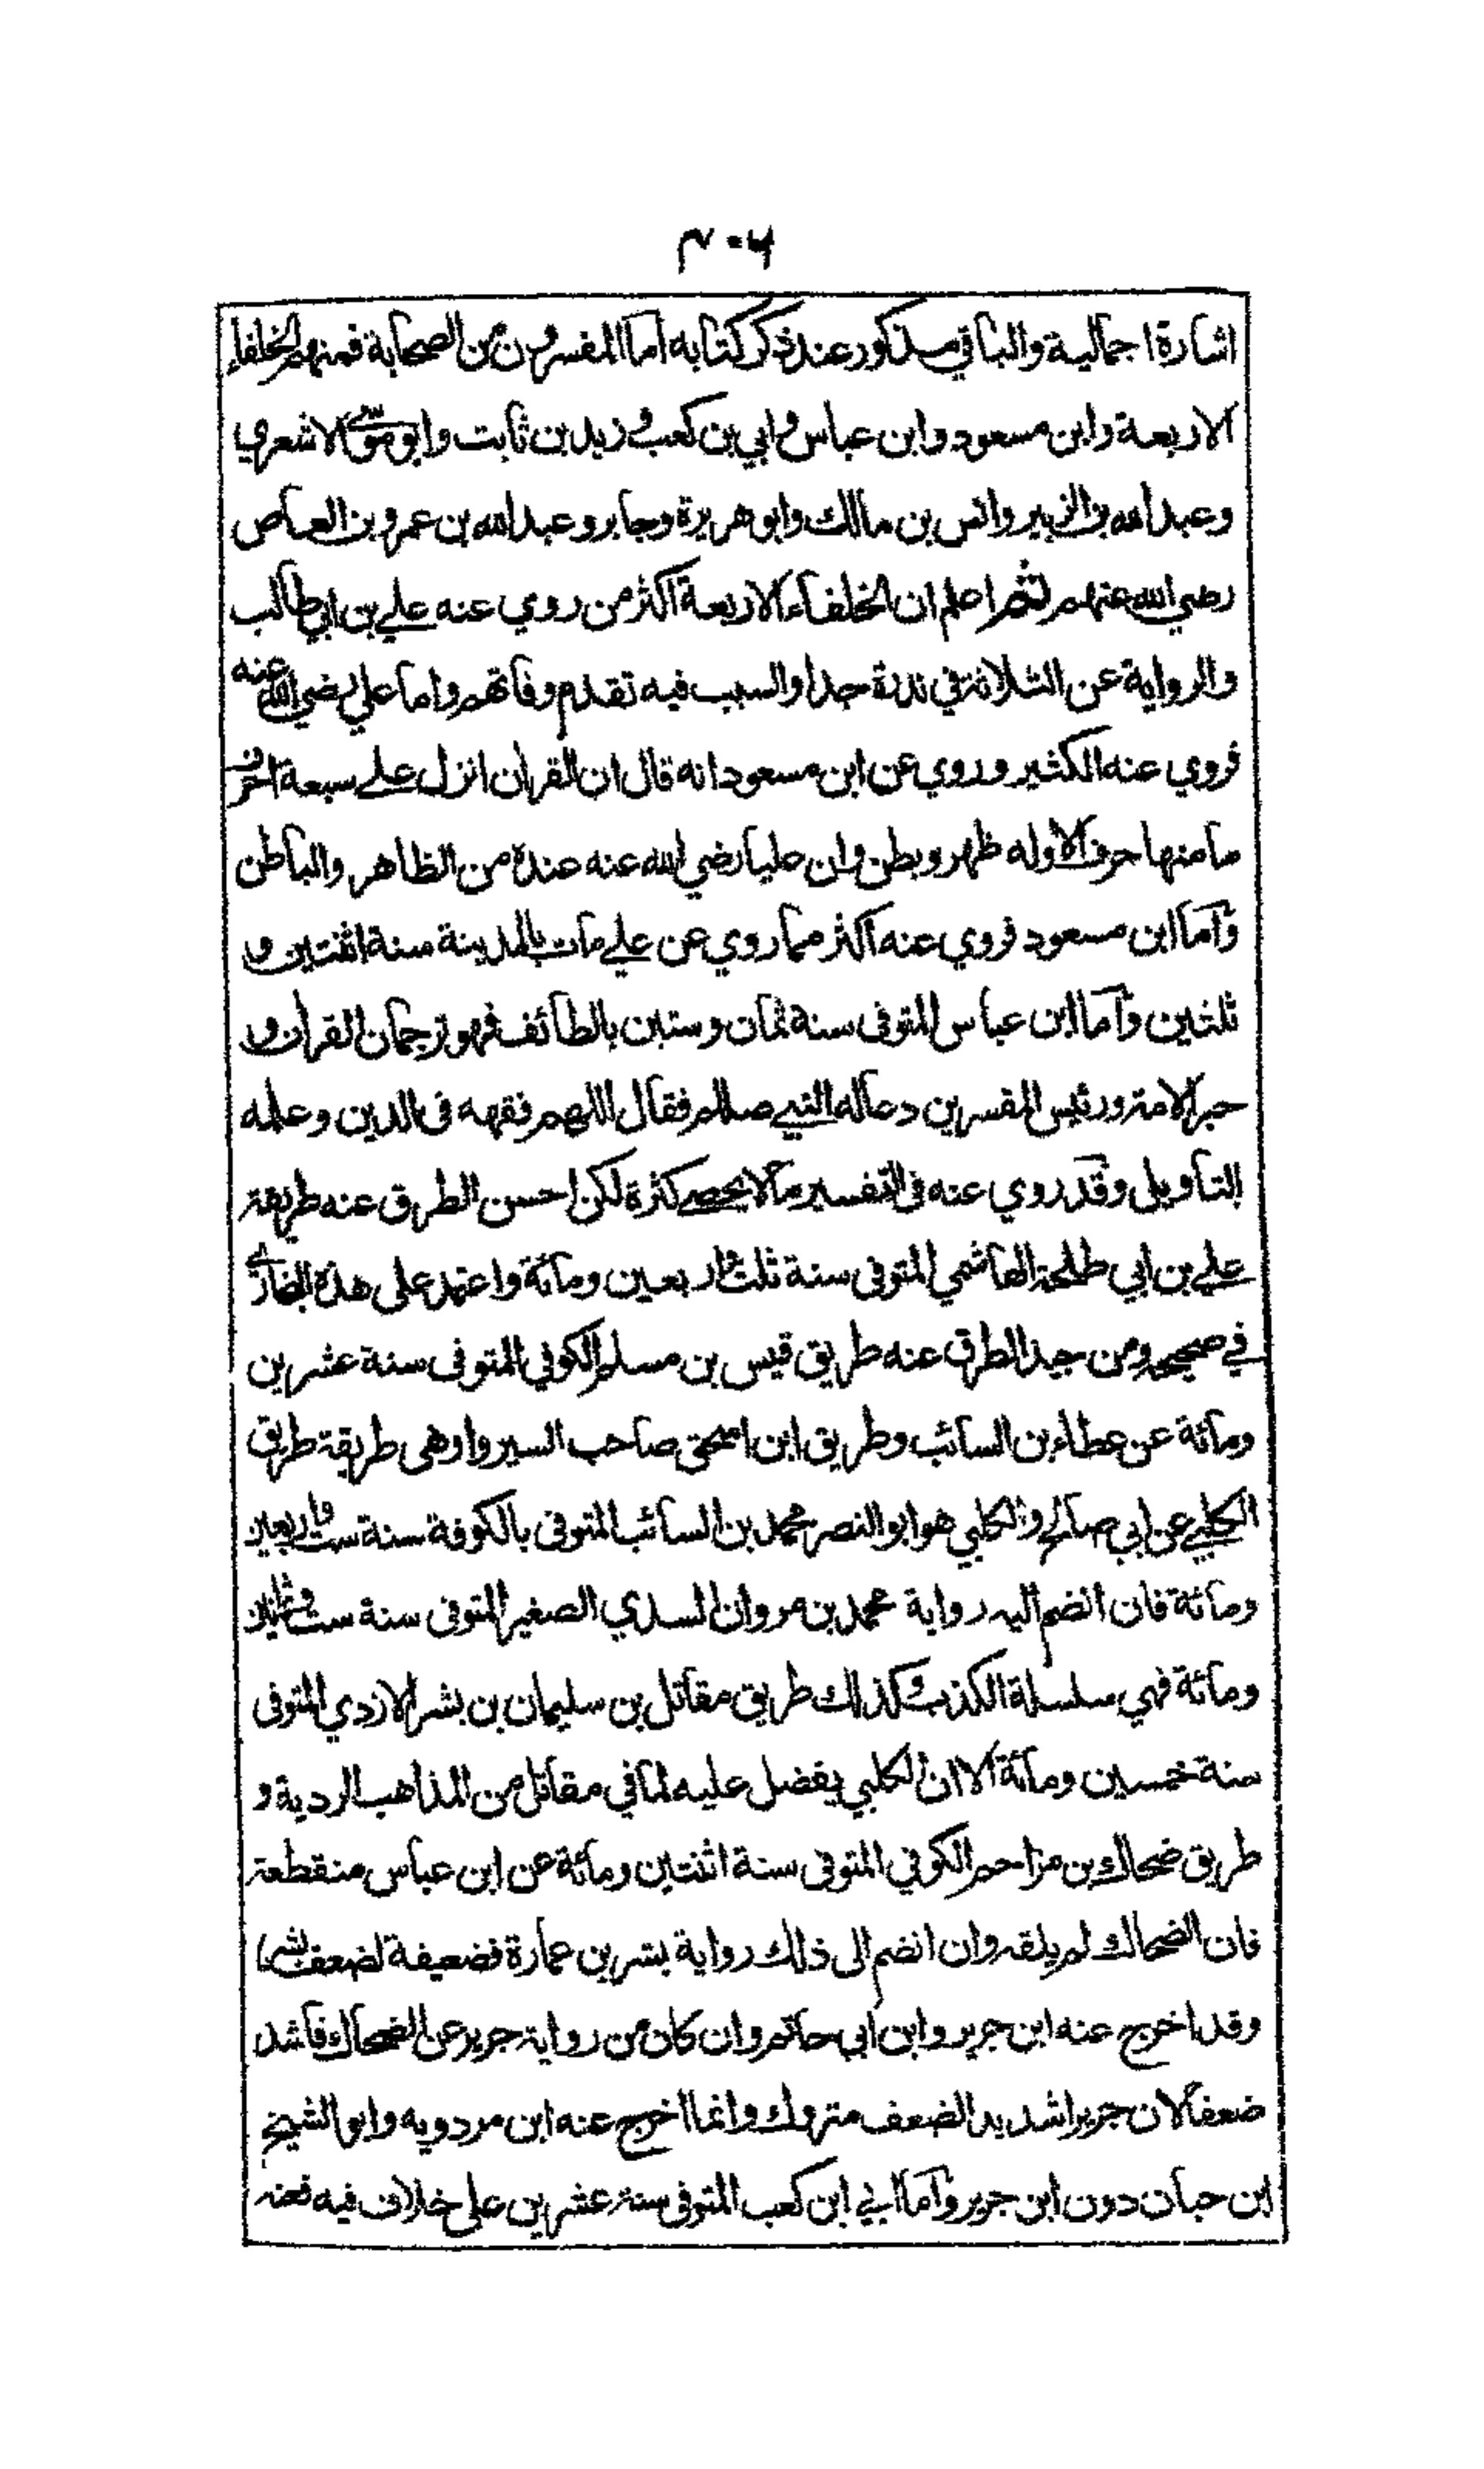 ٤٠٦
اشارة اجمالية والباقي مذكور عند ذكر كتابه اما المفسرون من الصحابة فمنهم الخلفاء
الاربعة وابن مسعود وابن عباس وابي بن كعب وزيد بن ثابت وابو موسى الاشعري
وعبد الله بن الزبير وانس بن مالك وابو هريرة وجابر وعبد الله بن عمرو بن العاص
رضي الله عنهم ثم اعلم ان الخلفاء الاربعة اكثر من روي عنه علي بن ابي طالب
والرواية عن الثلاثة في ندرة جدا والسبب فيه تقدم وفاتهم واما علي رضي الله عنه
فروي عنه الكثير وروي عن ابن مسعود انه قال ان القران انزل على سبعة احرف
ما منها حرف الا وله ظهر وبطن وان عليا رضي الله عنه عنده من الظاهر والباطن
واما ابن مسعود فروي عنه اكثر مما روي عن علي مات بالمدينة سنة اثنتين و
ثلثين واما ابن عباس المتوفى سنة ثمان وستين بالطائف فهو ترجمان القران و
حبر الامة ورئيس المفسرين دعا له النبي صللم فقال اللهم فقهه في الدين وعلمه
التاويل وقد روي عنه في التفسير ما لا يحصى كثرة لكن احسن الطرق عنه طريقة
علي بن ابي طلحة الهاشمي المتوفى سنة ثلث واربعين ومائة واعتمد على هذه البخاري
في صحيحه ومن جيد الطرق عنه طريق قيس بن مسلم الكوفي المتوفى سنة عشرين
ومائة عن عطاء بن السائب وطريق ابن اسحق صاحب السير واوهى طريقة طريق
الكلبي عن ابي صالح والكلبي هو ابو النصر محمد بن السائب المتوفى بالكوفة سنة ست واربعين
ومائة فان انضم اليه رواية محمد بن مروان السدي الصغير المتوفى سنة ست وثمانين
ومائة فهي سلسلة الكذب وكذلك طريق مقاتل بن سليمان بن بشر الازدي المتوفى
سنة خمسين ومائة الا ان الكلبي يفضل عليه لما في مقاتل من المذاهب الردية و
طريق ضحاك بن مزاحم الكوفي المتوفى سنة اثنتين ومائة عن ابن عباس منقطعة
فان الضحاك لم يلقه وان انضم الى ذلك رواية بشر بن عمارة فضعيفة لضعف بشر
وقد اخرج عنه ابن جرير وابن ابي حاتم وان كان من رواية جرير عن الضحاك فاشد
ضعفا لان جريرا شديد الضعف متروك وانما اخرج عنه ابن مردويه وابو الشيخ
ابن حبان دون ابن جرير واما ابي ابن كعب المتوفى سنة عشرين على خلاف فيه فعنه